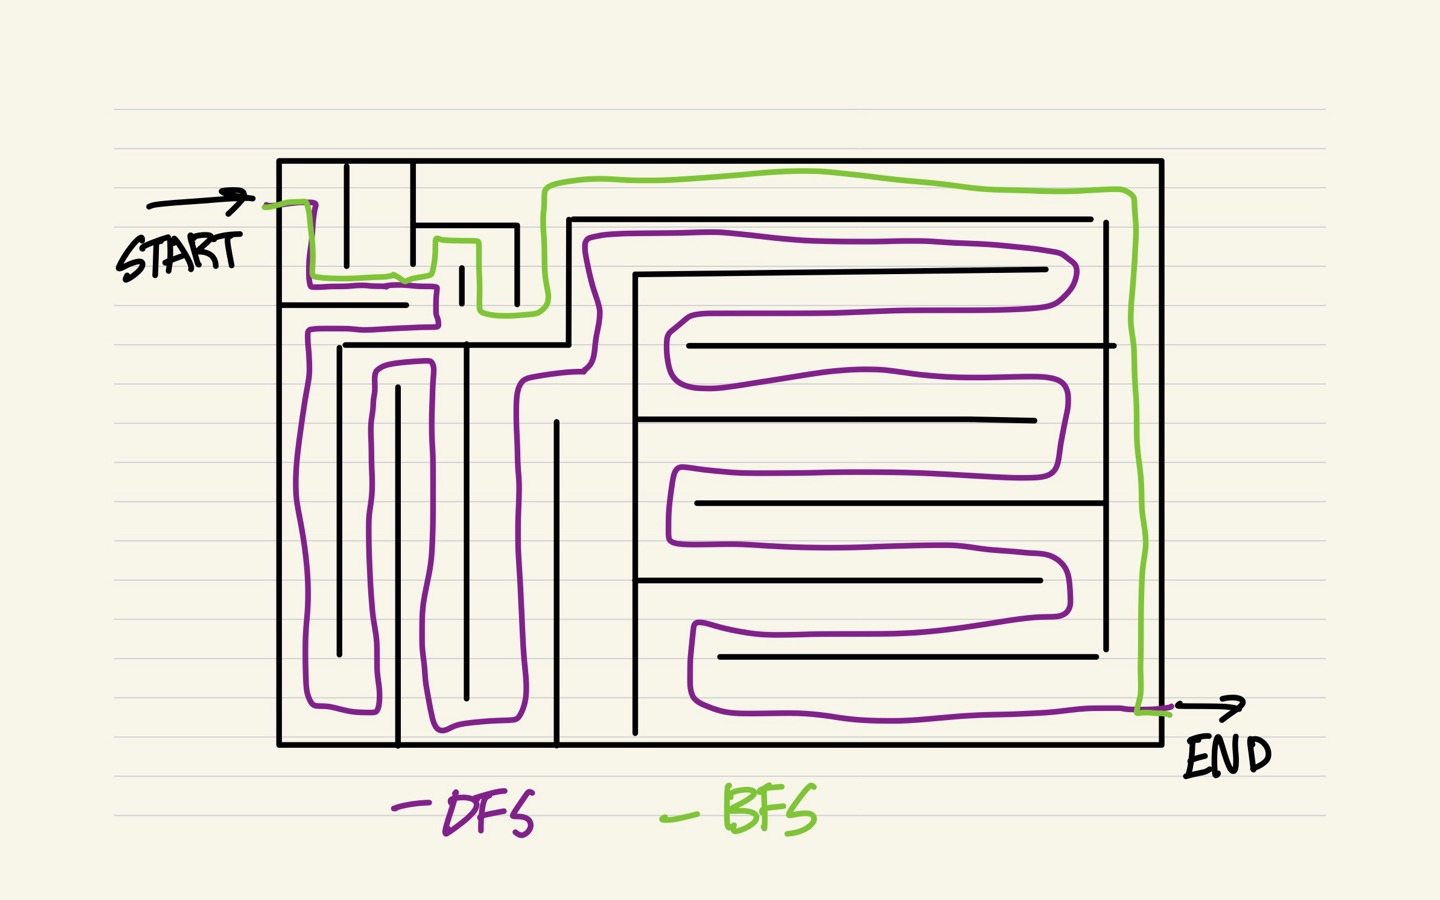 START
END
- DFS - BFS